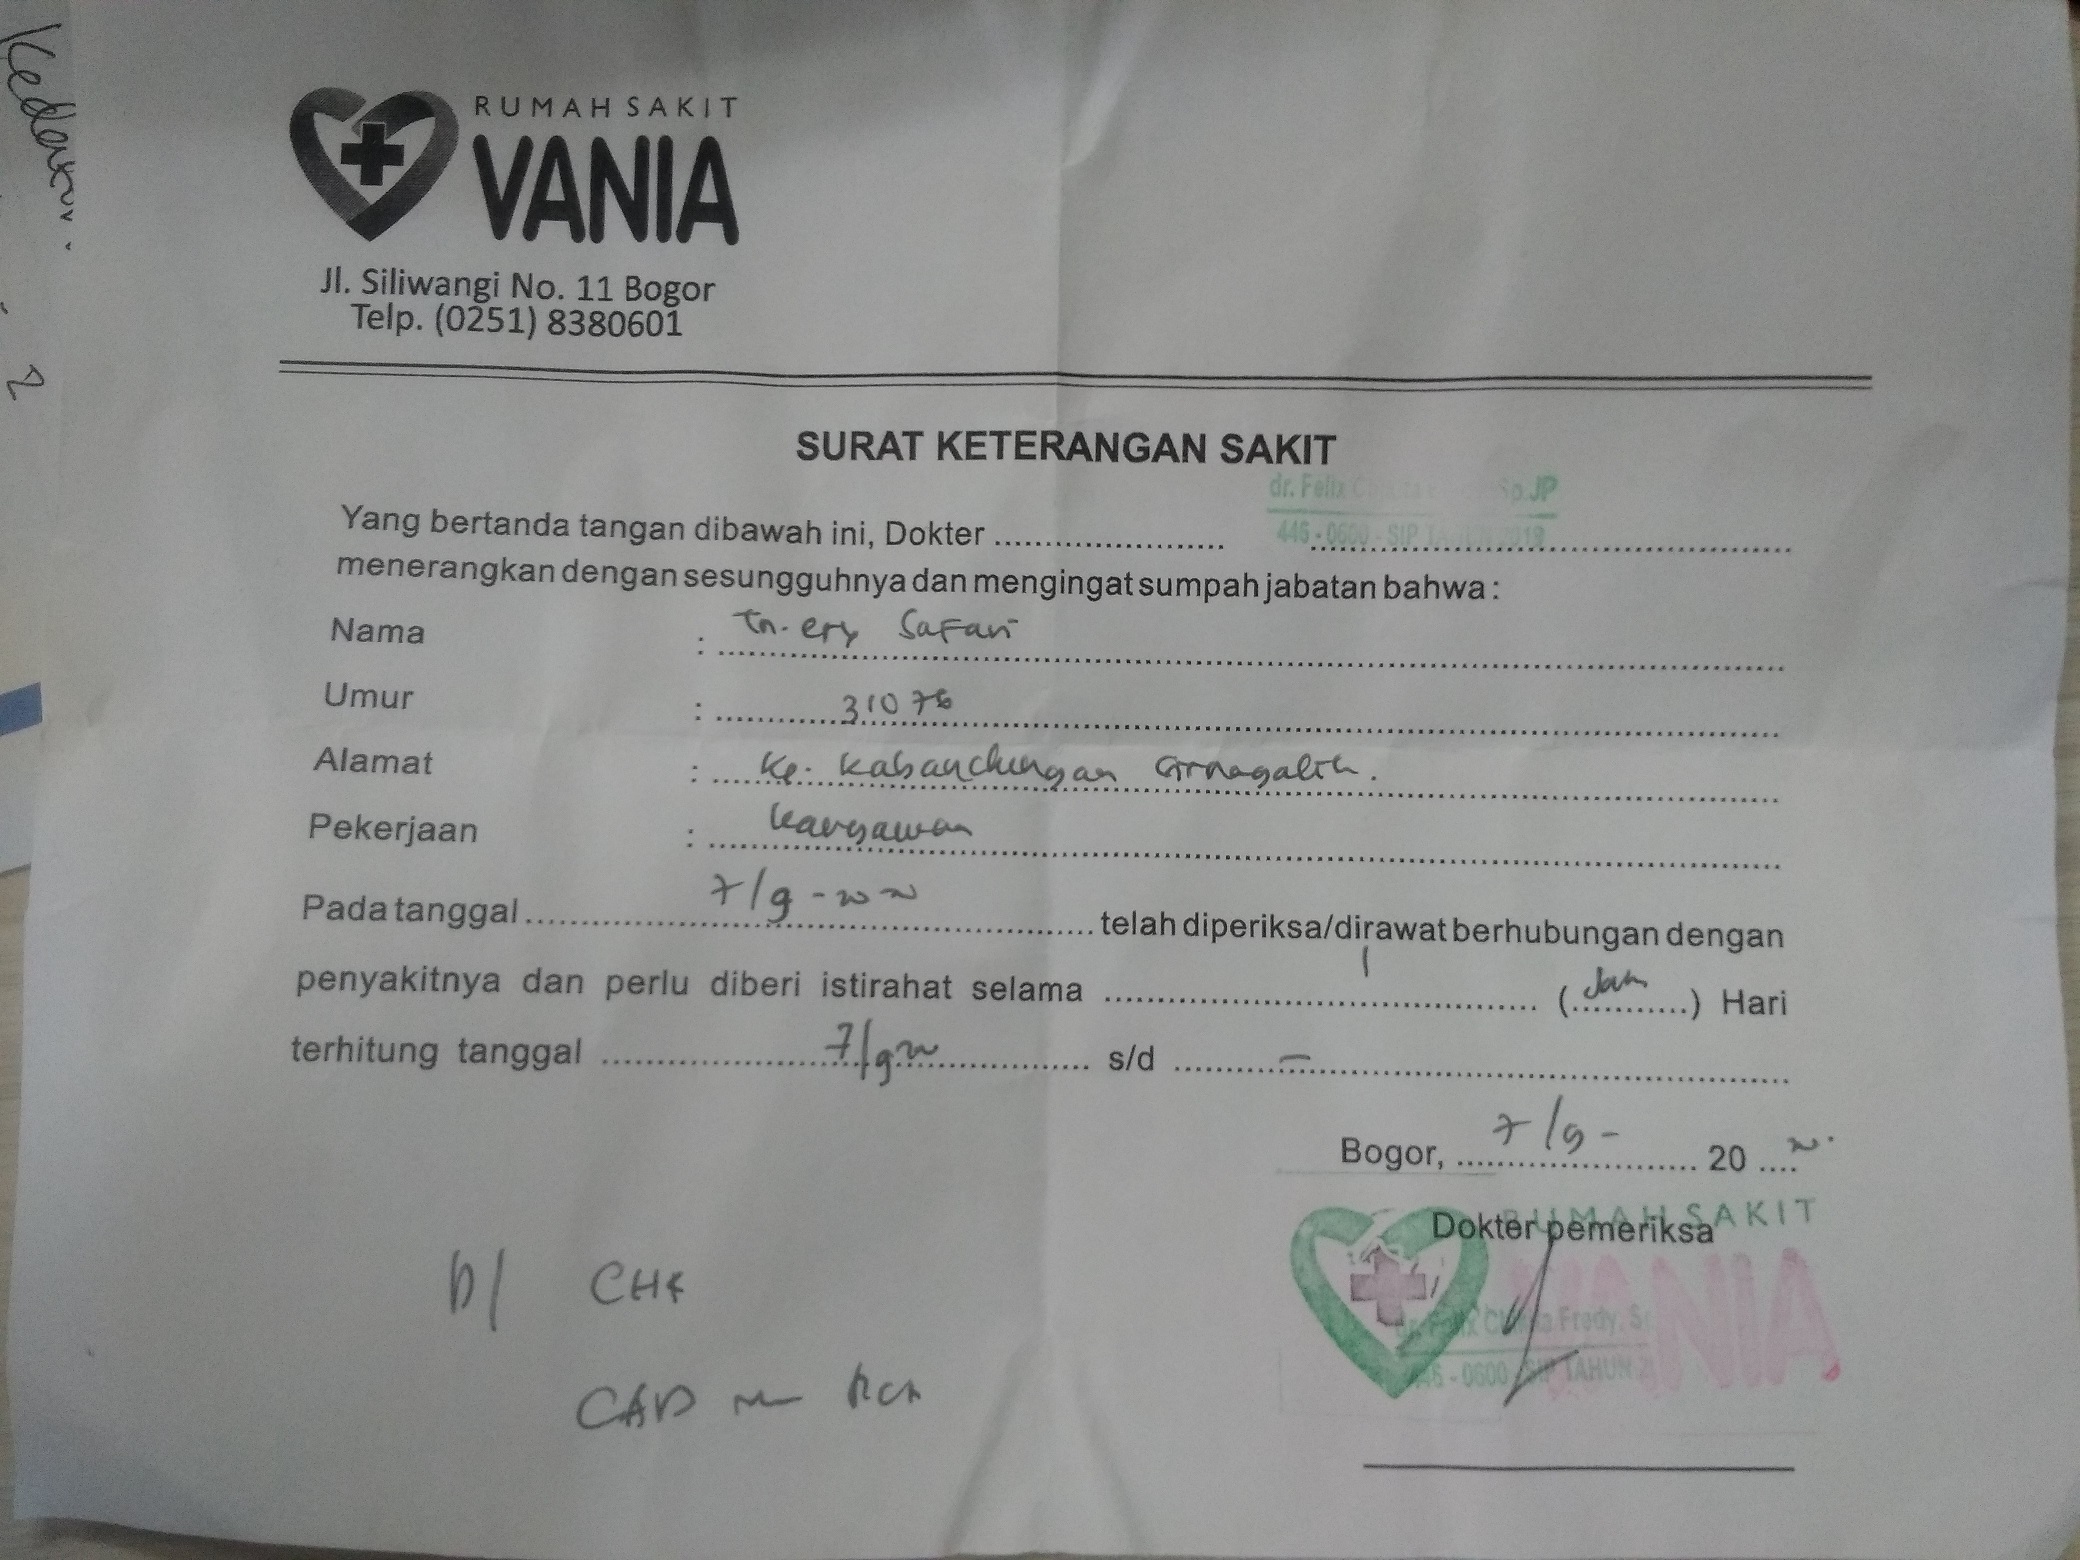 RUMAH SAKIT
VANIA
Jl. Siliwangi No. 11 Bogor
Telp. (0251) 8380601
SURAT KETERANGAN SAKIT
dr. Felix Sp.JP
Yang bertanda tangan dibawah ini, Dokter ......................
446 - 0600 - SIP TAHUN 2019
menerangkan dengan sesungguhnya dan mengingat sumpah jabatan bahwa :
Nama : Tn. ery Safari
Umur : 31 07 78
Alamat : Kp.
Pekerjaan : karyawan
Pada tanggal 7/9 - telah diperiksa/dirawat berhubungan dengan
penyakitnya dan perlu diberi istirahat selama 1 ( ) Hari
terhitung tanggal 7/9 s/d -
Bogor, 7/9 - 20
Dokter pemeriksa
RUMAH SAKIT
VANIA
dr. Felix Fredy, Sp
446 - 0600 - SIP TAHUN 2
D/ CHF
CAD